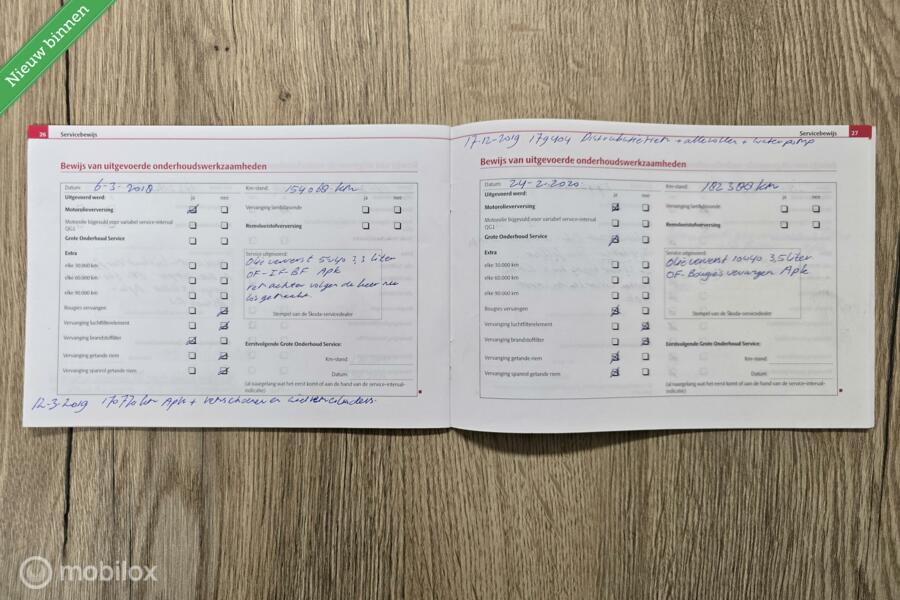 Nieuw binnen
26 Servicebewijs
Bewijs van uitgevoerde onderhoudswerkzaamheden
Datum: 6-3-2018 Km-stand: 154 068 km
Uitgevoerd werd: ja nee ja nee
Motorolieverversing
Vervanging lambdasonde
Motorolie bijgevuld voor variabel service-interval QG1
Remvloeistofverversing
Grote Onderhoud Service
Extra
elke 30.000 km
elke 60.000 km
elke 90.000 km
Bougies vervangen
Vervanging luchtfilterelement
Vervanging brandstoffilter
Vervanging getande riem
Vervanging spanrol getande riem
Service uitgevoerd:
Olie ververst 5w40 3,3 liter
OF-IF-BF Apk
achter volgens de heer
Stempel van de Škoda-servicedealer
Eerstvolgende Grote Onderhoud Service:
Km-stand:
Datum:
(al naargelang wat het eerst komt of aan de hand van de service-interval-
indicatie)
12-3-2019 170770 km Apk +
17-12-2019 179404 Distributieriem + alle rollen + waterpomp
Servicebewijs 27
Bewijs van uitgevoerde onderhoudswerkzaamheden
Datum: 24-2-2020 Km-stand: 182 300 km
Uitgevoerd werd: ja nee ja nee
Motorolieverversing
Vervanging lambdasonde
Motorolie bijgevuld voor variabel service-interval
QG1
Remvloeistofverversing
Grote Onderhoud Service
Extra
elke 30.000 km
elke 60.000 km
elke 90.000 km
Bougies vervangen
Vervanging luchtfilterelement
Vervanging brandstoffilter
Vervanging getande riem
Vervanging spanrol getande riem
Service uitgevoerd:
Olie ververst 10w40 3,5 liter
OF-Bougies vervangen Apk
Stempel van de Škoda-servicedealer
Eerstvolgende Grote Onderhoud Service:
Km-stand:
Datum:
(al naargelang wat het eerst komt of aan de hand van de service-interval-
indicatie)
mobilox